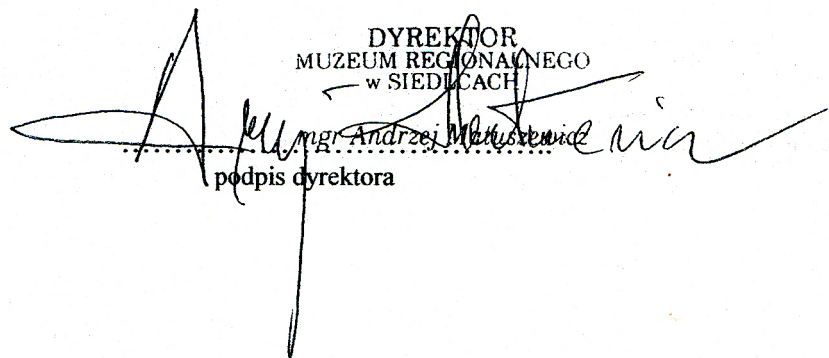 DYREKTOR
MUZEUM REGIONALNEGO
w SIEDLCACH
mgr Andrzej Matuszewicz
podpis dyrektora